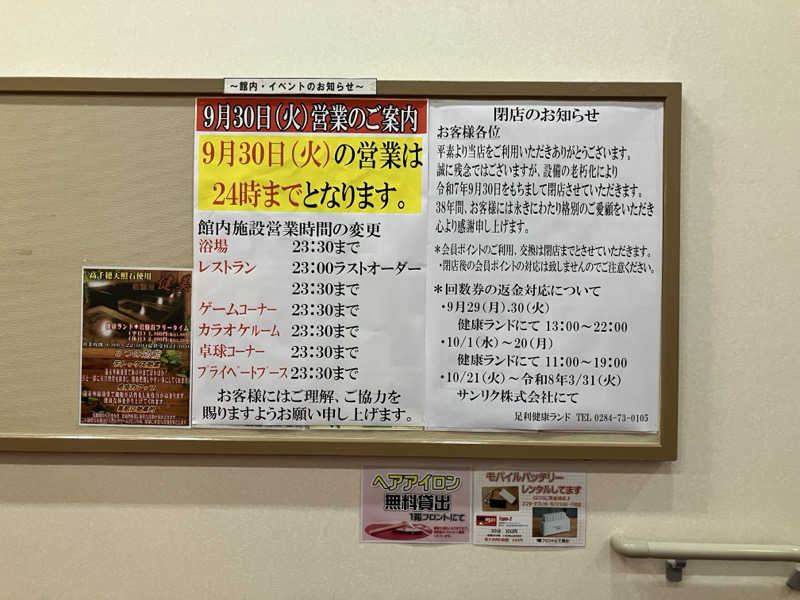 ～館内・イベントのお知らせ～
9月30日(火)営業のご案内
9月30日(火)の営業は
24時までとなります。
館内施設営業時間の変更
浴場 23:30まで
レストラン 23:00ラストオーダー
23:30まで
ゲームコーナー 23:30まで
カラオケルーム 23:30まで
卓球コーナー 23:30まで
プライベートブース 23:30まで
お客様にはご理解、ご協力を
賜りますようお願い申し上げます。
閉店のお知らせ
お客様各位
平素より当店をご利用いただきありがとうございます。
誠に残念ではございますが、設備の老朽化により
令和7年9月30日をもちまして閉店させていただきます。
38年間、お客様には永きにわたり格別のご愛顧をいただき
心より感謝申し上げます。
*会員ポイントのご利用、交換は閉店までとさせていただきます。
・閉店後の会員ポイントの対応は致しませんのでご注意ください。
*回数券の返金対応について
・9月29(月).30(火)
健康ランドにて 13:00～22:00
・10/1(水)～20(月)
健康ランドにて 11:00～19:00
・10/21(火)～令和8年3/31(火)
サンリク株式会社にて
足利健康ランド TEL 0284-73-0105
高千穂天照石使用
ヘアアイロン
無料貸出
1階フロントにて
モバイルバッテリー
レンタルしてます